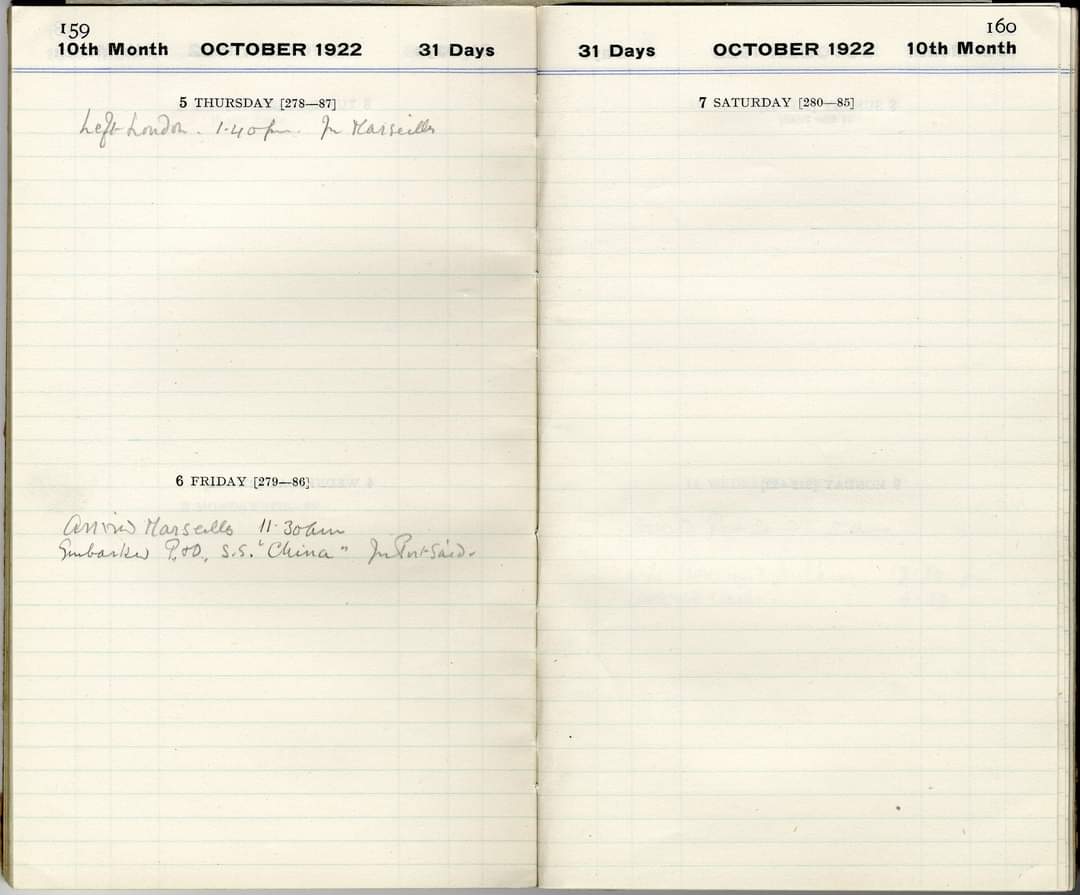 159
10th Month OCTOBER 1922 31 Days
5 THURSDAY [278—87]
Left London. 1.40 pm. for Marseilles
6 FRIDAY [279—86]
Arrived Marseilles 11.30am
Embarked P.&O., S.S. "China" for Port Said.
160
31 Days OCTOBER 1922 10th Month
7 SATURDAY [280—85]